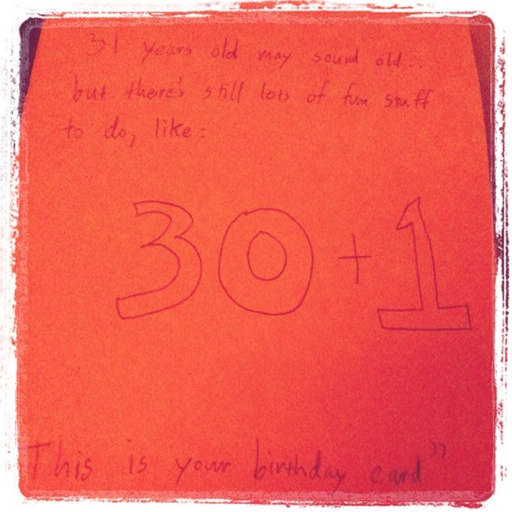 31 years old may sound old..
but there's still lots of fun stuff
to do, like:
30 + 1
This is your birthday card"